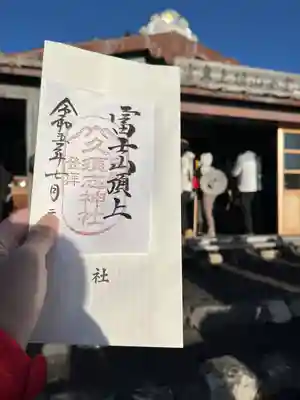 富士山頂上
久須志神社
登拝
令和五年七月二
社